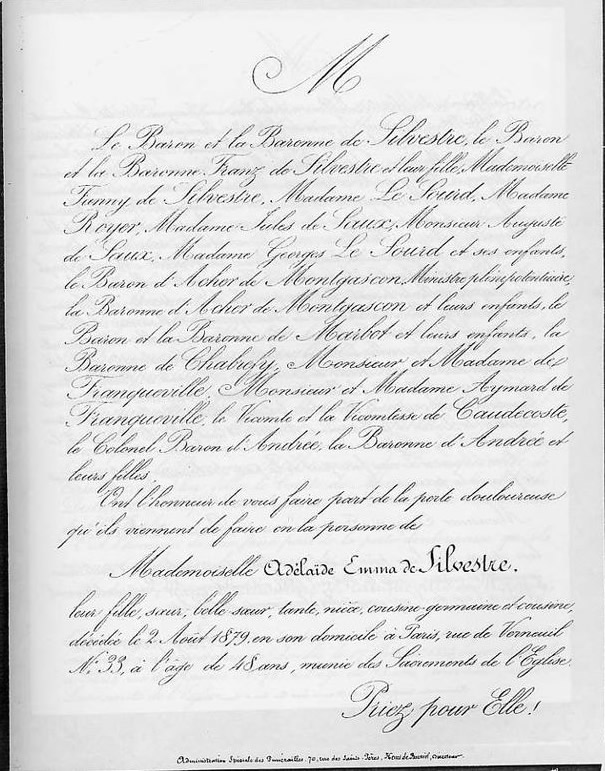 M
Le Baron et la Baronne de Silvestre, le Baron
et la Baronne Franz de Silvestre et leur fille, Mademoiselle
Fanny de Silvestre, Madame Le Sourd, Madame
Royer, Madame Jules de Saux, Monsieur Auguste
de Saux, Madame Georges Le Sourd et ses enfants,
le Baron d'Acher de Montgascon, Ministre plénipotentiaire,
la Baronne d'Acher de Montgascon et leurs enfants, le
Baron et la Baronne de Marbot et leurs enfants, la
Baronne de Chabrefy, Monsieur et Madame de
Franqueville, Monsieur et Madame Aymard de
Franqueville, le Vicomte et la Vicomtesse de Caudecoste,
le Colonel Baron d'Andrée, la Baronne d'Andrée et
leurs filles,
Ont l'honneur de vous faire part de la perte douloureuse
qu'ils viennent de faire en la personne de
Mademoiselle Adélaïde Emma de Silvestre.
leur fille, sœur, belle-sœur, tante, nièce, cousine-germaine et cousine,
décédée le 2 Août 1879, en son domicile à Paris, rue de Verneuil
N° 33, à l'âge de 48 ans, munie des Sacrements de l'Eglise.
Priez pour Elle!
Administration Spéciale des Funérailles, 70, rue des Saints-Pères,